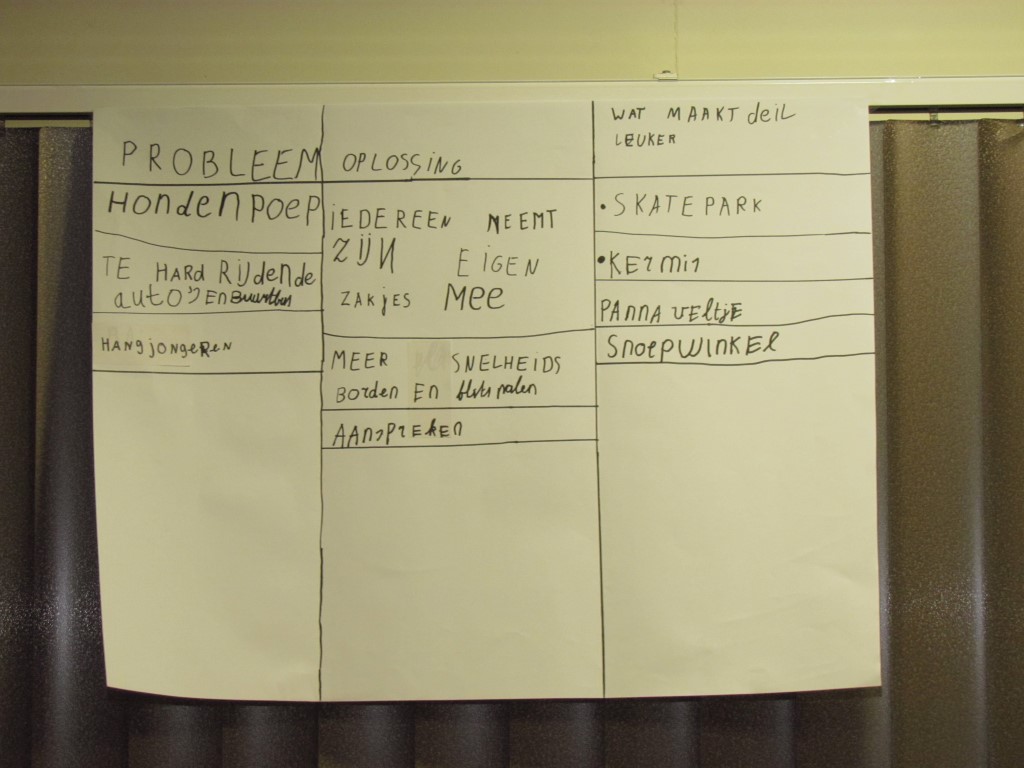 PROBLEEM
HondenPoep
TE HARd RijdEnde
autO'S EN Buurtbus
HANgjongeREN
OPLOSSING
iEDEREEN NEEMT
ZijN EiGEN
ZAKjES MEE
MEER SNELHEIDS
Borden EN flitspalen
AAnsPREkEn
WAT MAAKT deiL
LEUKER
• SKATEPARK
• KErmis
PAnnA vEltjE
SnoepWINKEl